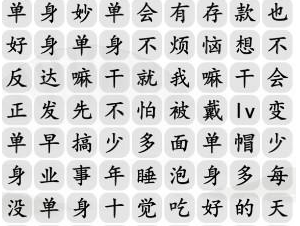 单身妙单会有存款也
好身单身不烦恼想不
反达嘛干就我嘛干会
正发先不怕被戴lv变
单早搞少多面单帽少
身业事年睡泡身多每
没单身十觉吃好的天